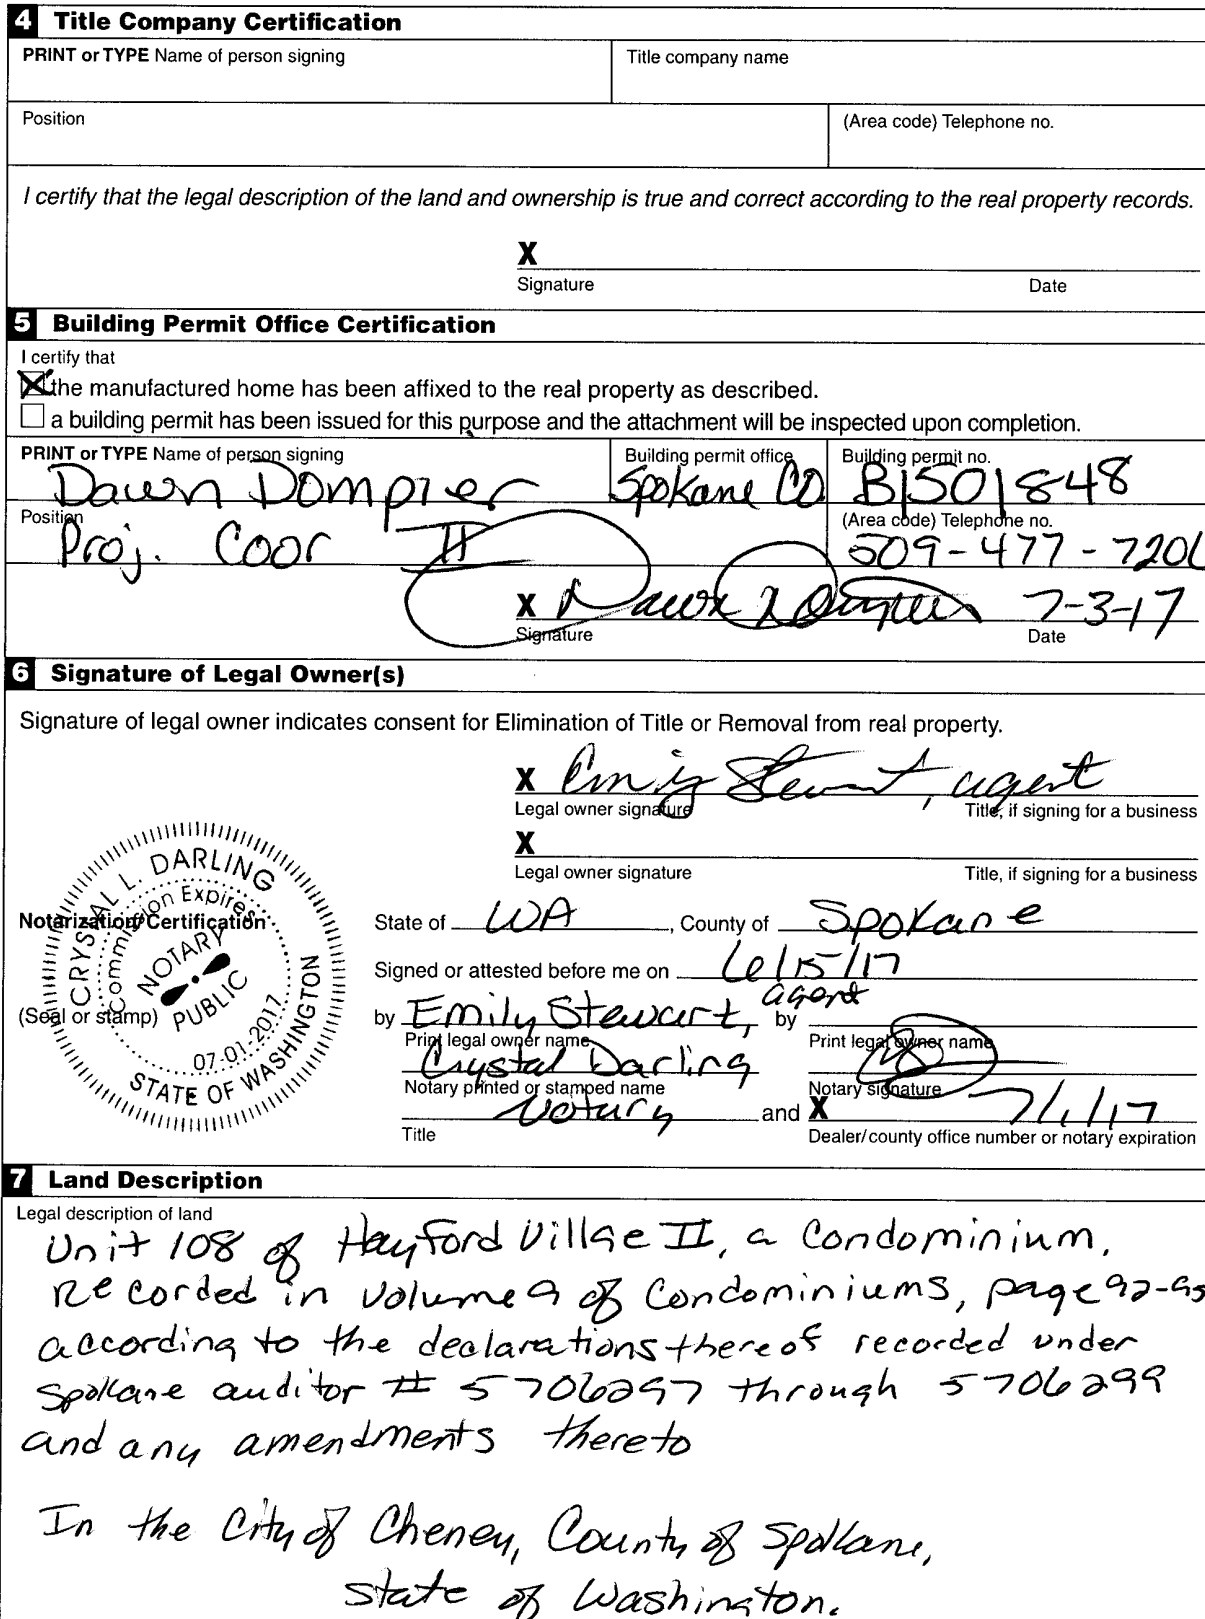 4 Title Company Certification
PRINT or TYPE Name of person signing Title company name
Position (Area code) Telephone no.
I certify that the legal description of the land and ownership is true and correct according to the real property records.
X
Signature Date
5 Building Permit Office Certification
I certify that
X the manufactured home has been affixed to the real property as described.
a building permit has been issued for this purpose and the attachment will be inspected upon completion.
PRINT or TYPE Name of person signing Building permit office Building permit no.
Dawn Dompier Spokane CO B1501848
Position (Area code) Telephone no.
Proj. Coor II 509-477-720
X Dawn Dompier 7-3-17
Signature Date
6 Signature of Legal Owner(s)
Signature of legal owner indicates consent for Elimination of Title or Removal from real property.
X Emily Stewart, agent
Legal owner signature Title, if signing for a business
X
Legal owner signature Title, if signing for a business
CRYSTAL L. DARLING
Commission Expires
NOTARY
PUBLIC
07-01-2017
STATE OF WASHINGTON
Notarization/Certification State of WA, County of Spokane
Signed or attested before me on 6/15/17
(Seal or stamp) by Emily Stewart, agent by
Print legal owner name Print legal owner name
Crystal Darling
Notary printed or stamped name Notary signature
Notary and X 7/1/17
Title Dealer/county office number or notary expiration
7 Land Description
Legal description of land
Unit 108 of Hayford Villge II, a Condominium,
Recorded in Volume 9 of Condominiums, page 92-95
according to the declarations thereof recorded under
Spokane auditor # 5706297 through 5706299
and any amendments thereto
In the City of Cheney, County of Spokane,
State of Washington.